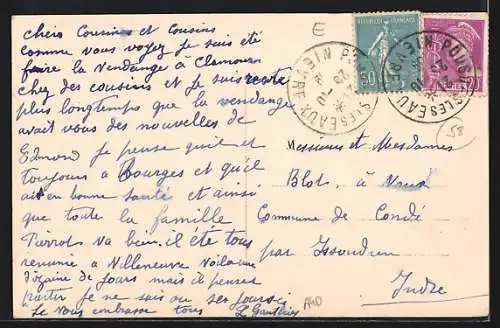 chers Cousines et Cousins
comme vous voyez je suis été
faire la vendange à Clamour
chez des cousins et je suis resté
plus longtemps que la vendange
avait vous des nouvelles de
Edmond je pense qu'il et
toujours a Bourges et qu'il
ait en bonne santé et ainsi
que toute la famille
Pierrot va bien. il été tous
reunnie a Villeneuve voila une
de jours mais il penser
partir je ne sais au ses jours ci
Je vous embrasse tous L Gauthier
REPUBLIQUE FRANÇAISE
50
POUGUES LES EAUX
NIEVRE
POUGUES LES EAUX
NIEVRE
58
Messieurs et Mesdames
Blot, à
Commune de Condé
par Issoudun
Indre
A40